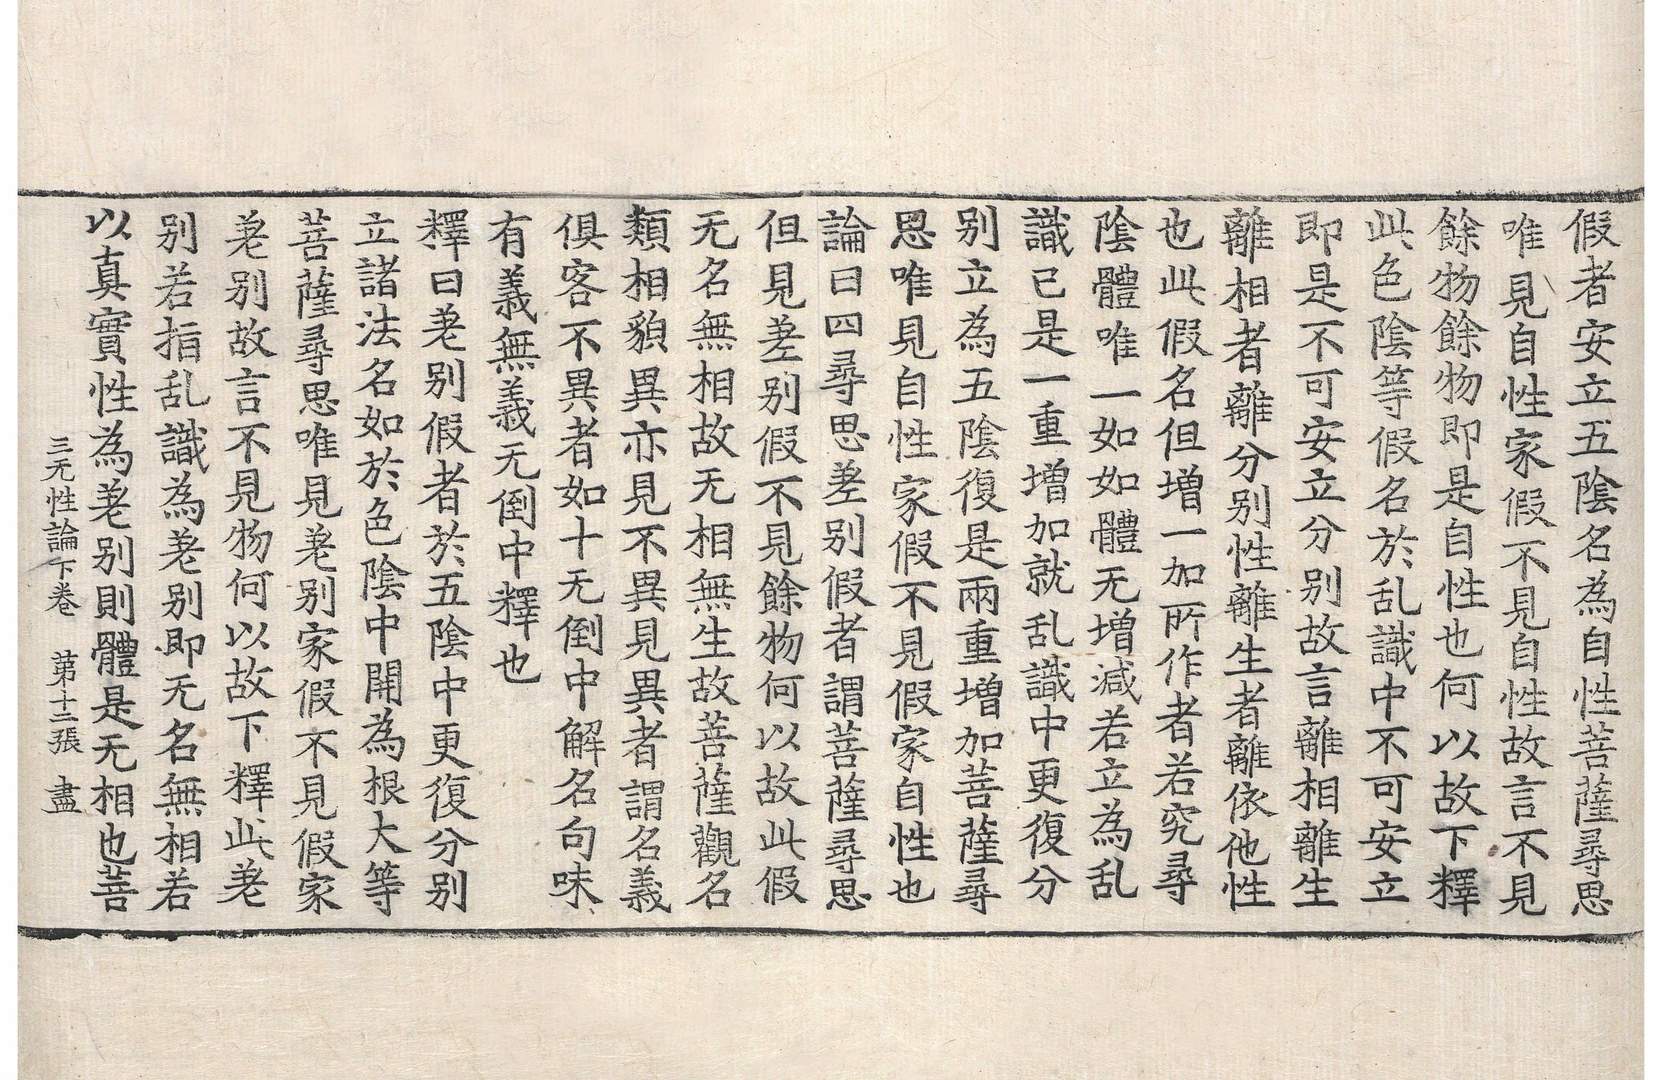 假者安立五陰名為自性菩薩尋思
唯見自性家假不見自性故言不見
餘物餘物即是自性也何以故下釋
此色陰等假名於乱識中不可安立
即是不可安立分別故言離相離生
離相者離分別性離生者離依他性
也此假名但增一加所作者若究尋
陰體唯一如如體无增減若立為乱
識已是一重增加就乱識中更復分
別立為五陰復是兩重增加菩薩尋
思唯見自性家假不見假家自性也
論曰四尋思差別假者謂菩薩尋思
但見差別假不見餘物何以故此假
无名無相故无相無生故菩薩觀名
類相貌異亦見不異見異者謂名義
俱客不異者如十无倒中解名句味
有義無義无倒中釋也
釋曰差別假者於五陰中更復分別
立諸法名如於色陰中開為根大等
菩薩尋思唯見差別家假不見假家
差別故言不見物何以故下釋此差
別若指乱識為差別即无名無相若
以真實性為差別則體是无相也菩
三无性論下卷　第十二張　盡